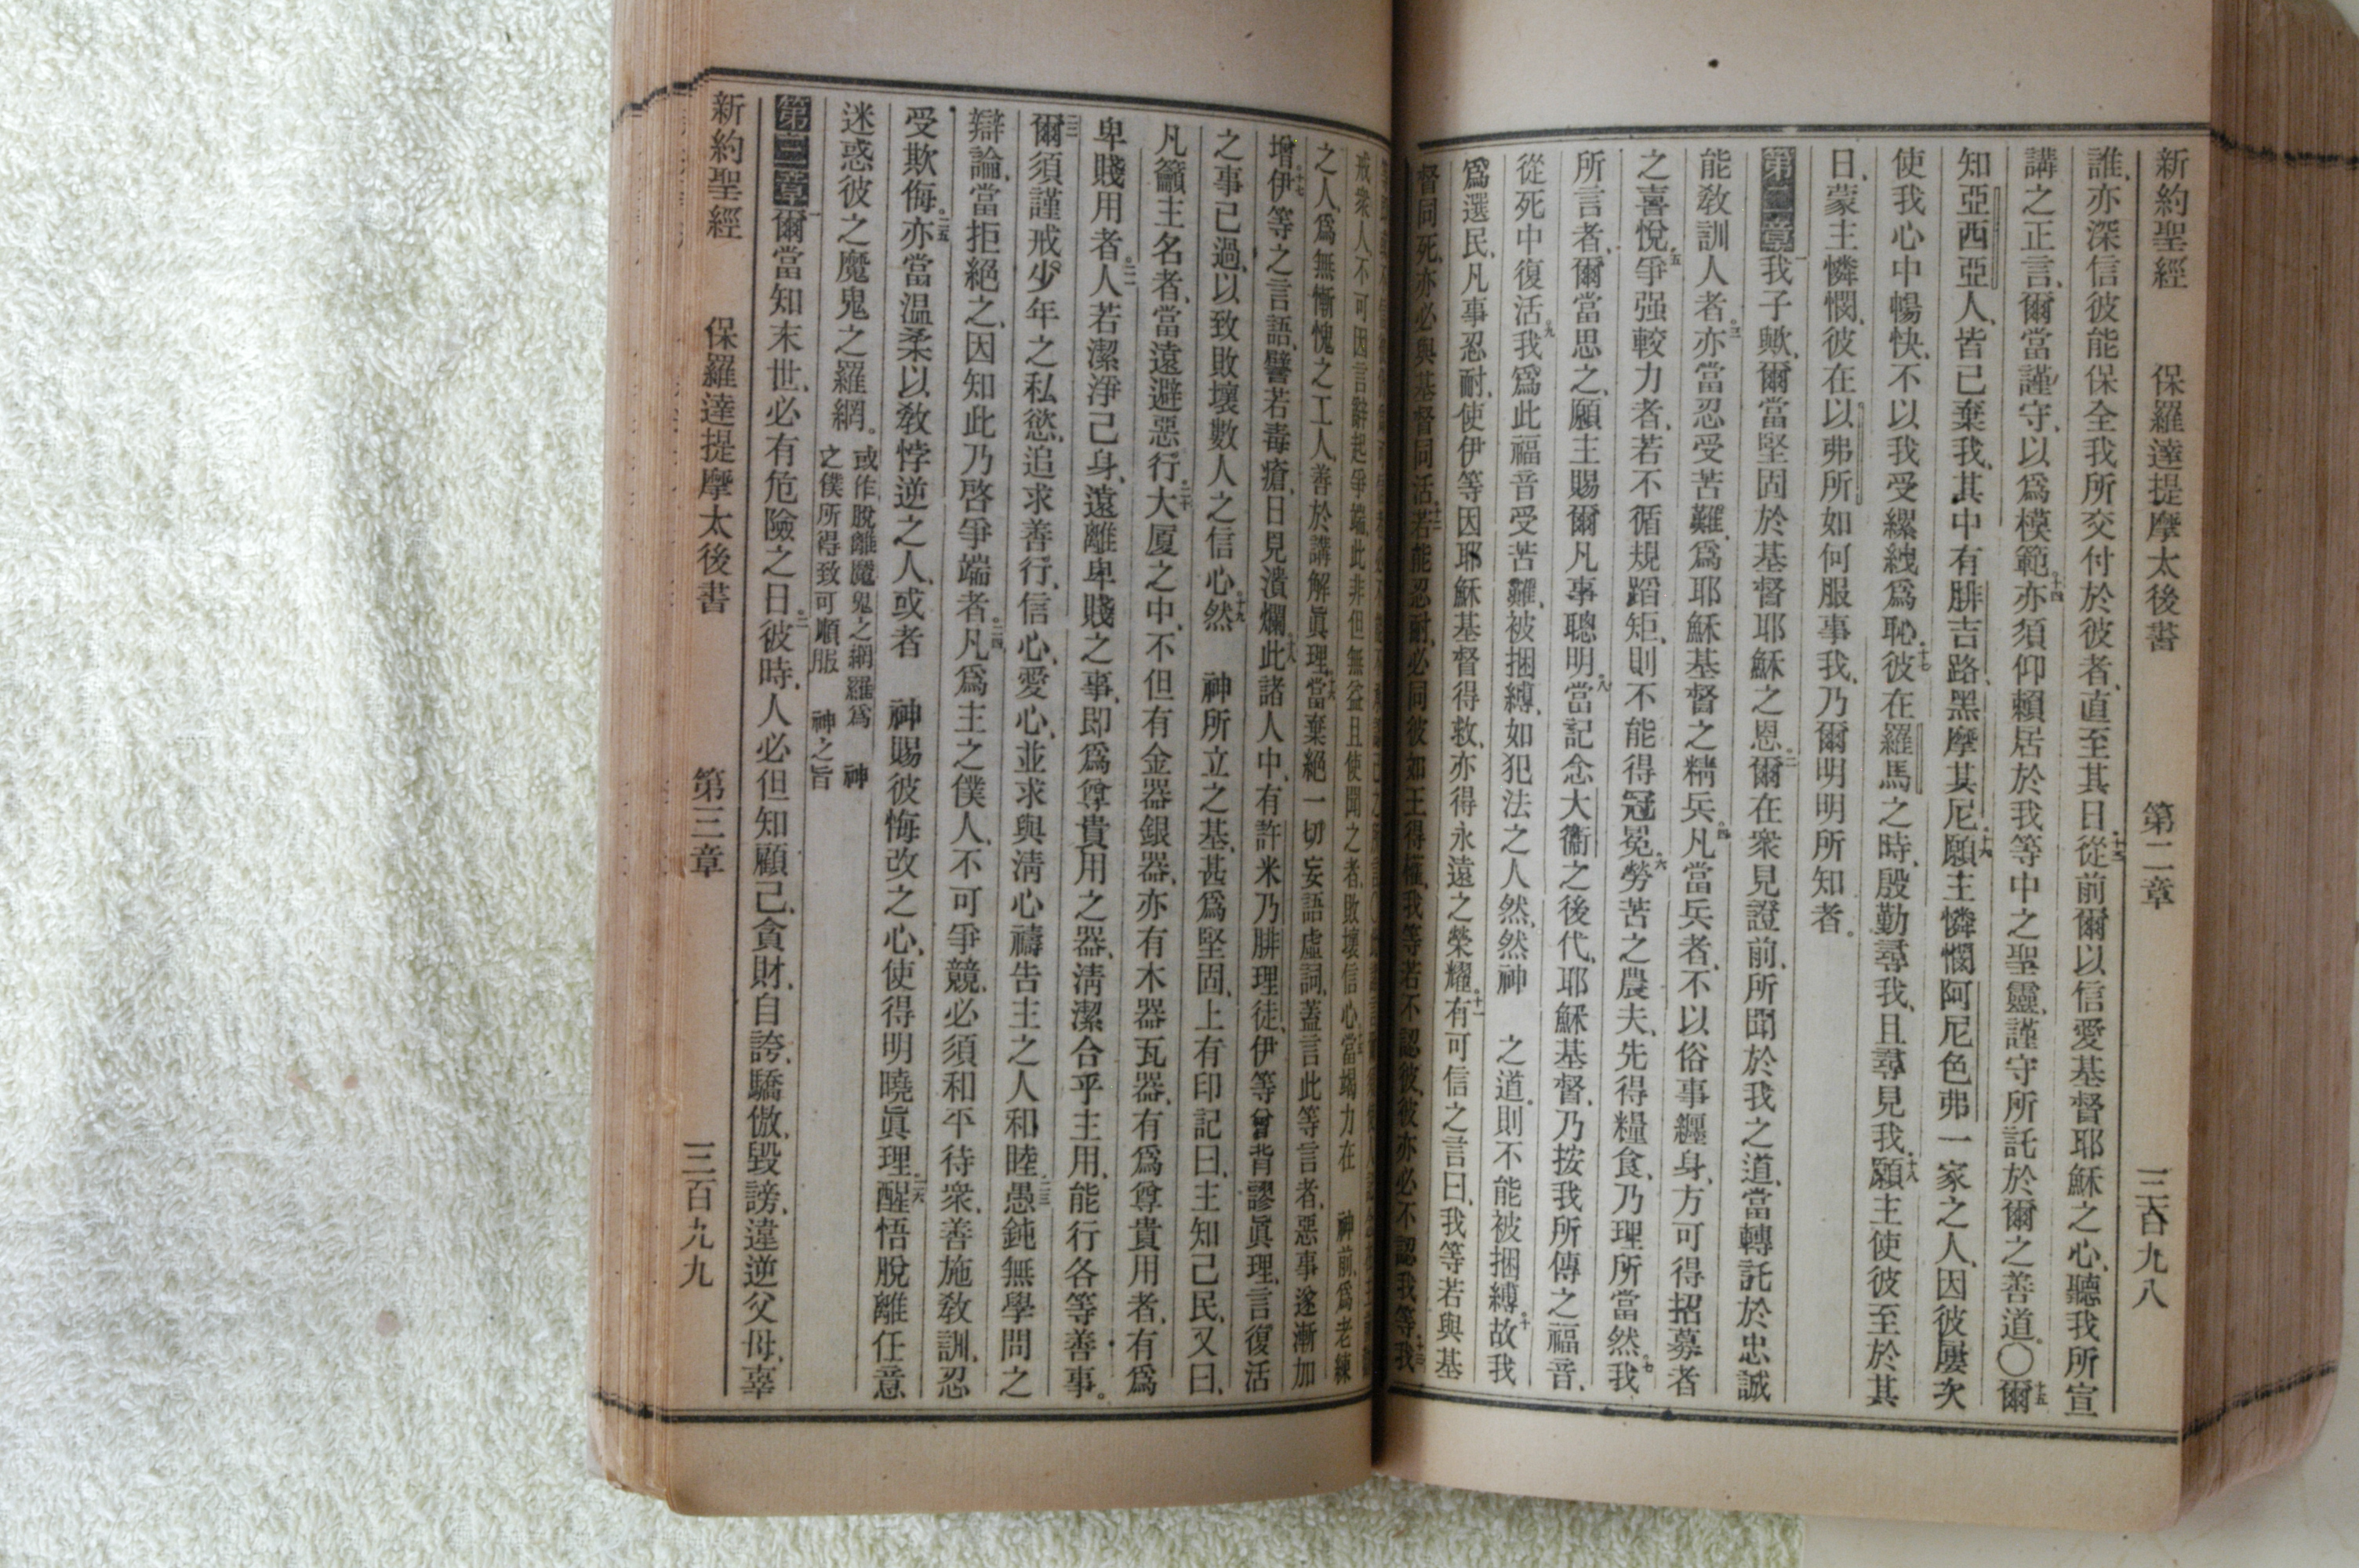 新約聖經 保羅達提摩太後書 第二章 三百九八
誰、亦深信彼能保全我所交付於彼者、直至其日。十三從前爾以信愛基督耶穌之心、聽我所宣
講之正言、爾當謹守、以爲模範。十四亦須仰賴居於我等中之聖靈、謹守所託於爾之善道。〇十五爾
知亞西亞人、皆已棄我、其中有腓吉路、黑摩其尼。十六願主憐憫阿尼色弗一家之人、因彼屢次
使我心中暢快、不以我受縲絏爲恥。十七彼在羅馬之時、殷勤尋我、且尋見我。十八願主使彼至於其
日、蒙主憐憫、彼在以弗所如何服事我、乃爾明明所知者。
第二章一我子歟、爾當堅固於基督耶穌之恩。二爾在衆見證前、所聞於我之道、當轉託於忠誠
能敎訓人者。三亦當忍受苦難、爲耶穌基督之精兵。四凡當兵者、不以俗事纒身、方可得招募者
之喜悅。五爭强較力者、若不循規蹈矩、則不能得冠冕。六勞苦之農夫、先得糧食、乃理所當然。七我
所言者、爾當思之、願主賜爾凡事聰明。八當記念大衞之後代、耶穌基督、乃按我所傳之福音、
從死中復活。九我爲此福音受苦難、被捆縛、如犯法之人然、然神 之道、則不能被捆縛。十故我
爲選民、凡事忍耐、使伊等因耶穌基督得救、亦得永遠之榮耀。十一有可信之言曰、我等若與基
督同死、亦必與基督同活。十二若能忍耐、必同彼如王得權、我等若不認彼、彼亦必不認我等。十三我
戒衆人不可因言辭起爭端、此非但無益、且使聞之者、敗壞信心。十五當竭力在 神前、爲老練
之人、爲無慚愧之工人、善於講解眞理。十六當棄絕一切妄語虛詞、蓋言此等言者、惡事遂漸加
增。十七伊等之言語、譬若毒瘡、日見潰爛。十八此諸人中、有許米乃腓理徒、伊等曾背謬眞理、言復活
之事已過、以致敗壞數人之信心。十九然 神所立之基、甚爲堅固、上有印記曰、主知己民、又曰、
凡籲主名者、當遠避惡行。二十大厦之中、不但有金器銀器、亦有木器瓦器、有爲尊貴用者、有爲
卑賤用者。二一人若潔淨己身、遠離卑賤之事、即爲尊貴用之器、淸潔合乎主用、能行各等善事。
二二爾須謹戒少年之私慾、追求善行、信心、愛心、並求與淸心禱告主之人和睦。二三愚鈍無學問之
辯論、當拒絕之、因知此乃啓爭端者。二四凡爲主之僕人、不可爭競、必須和平待衆、善施敎訓、忍
受欺侮。二五亦當温柔以敎悖逆之人、或者 神賜彼悔改之心、使得明曉眞理。二六醒悟脫離任意
迷惑彼之魔鬼之羅網。或作脫離魔鬼之網羅爲 神之僕所得致可順服 神之旨
第三章一爾當知末世、必有危險之日。二彼時、人必但知顧己、貪財、自誇、驕傲、毀謗、違逆父母、辜
新約聖經 保羅達提摩太後書 第三章 三百九九